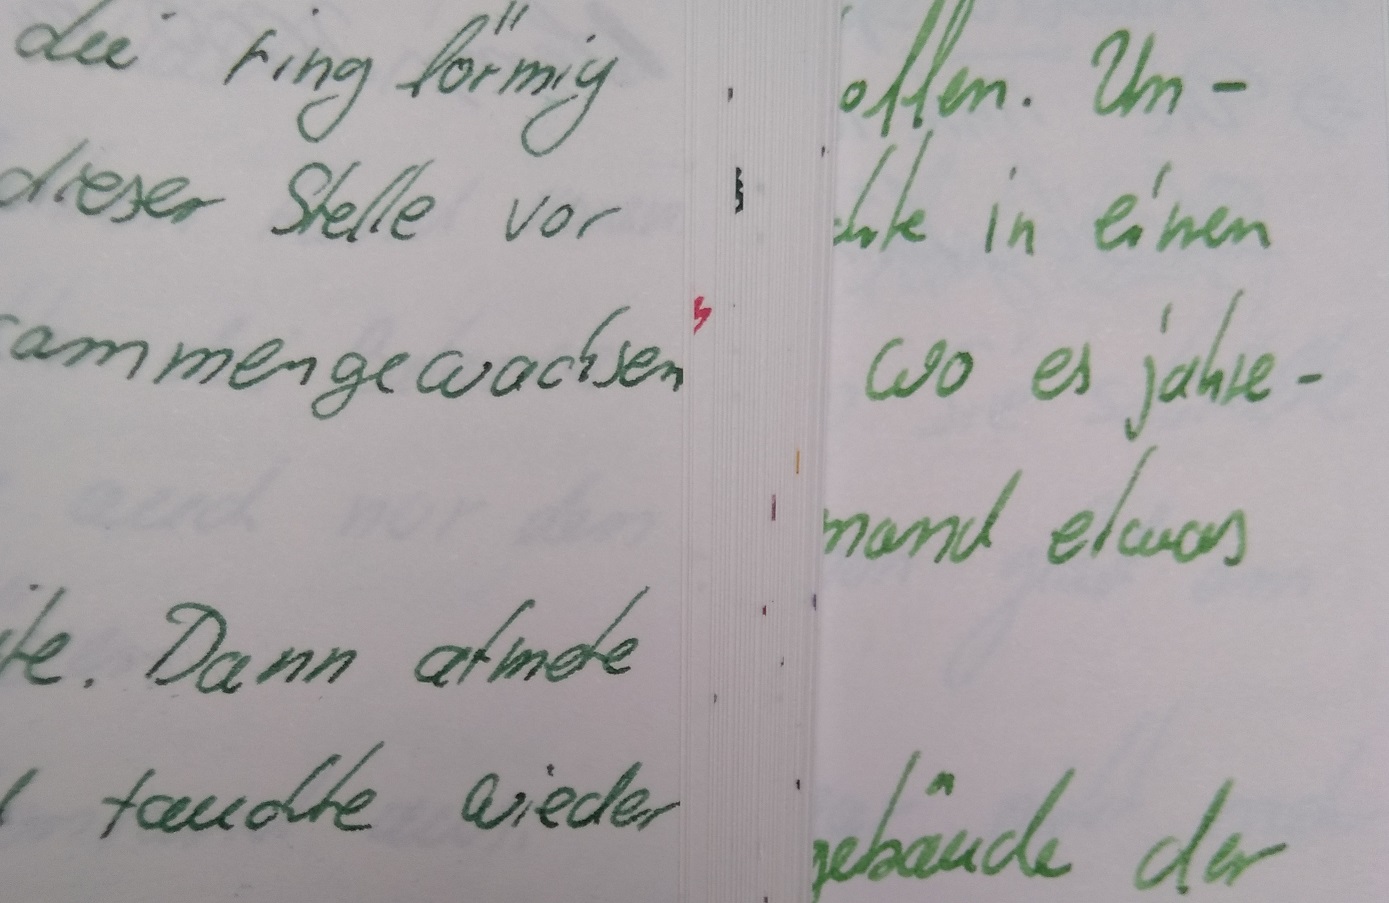 die ring förmig
dieser Stelle vor
sammengewachsen
ite. Dann atmete
tauchte wieder
offen. Un-
chte in einen
wo es jahre-
mand etwas
gebäude der